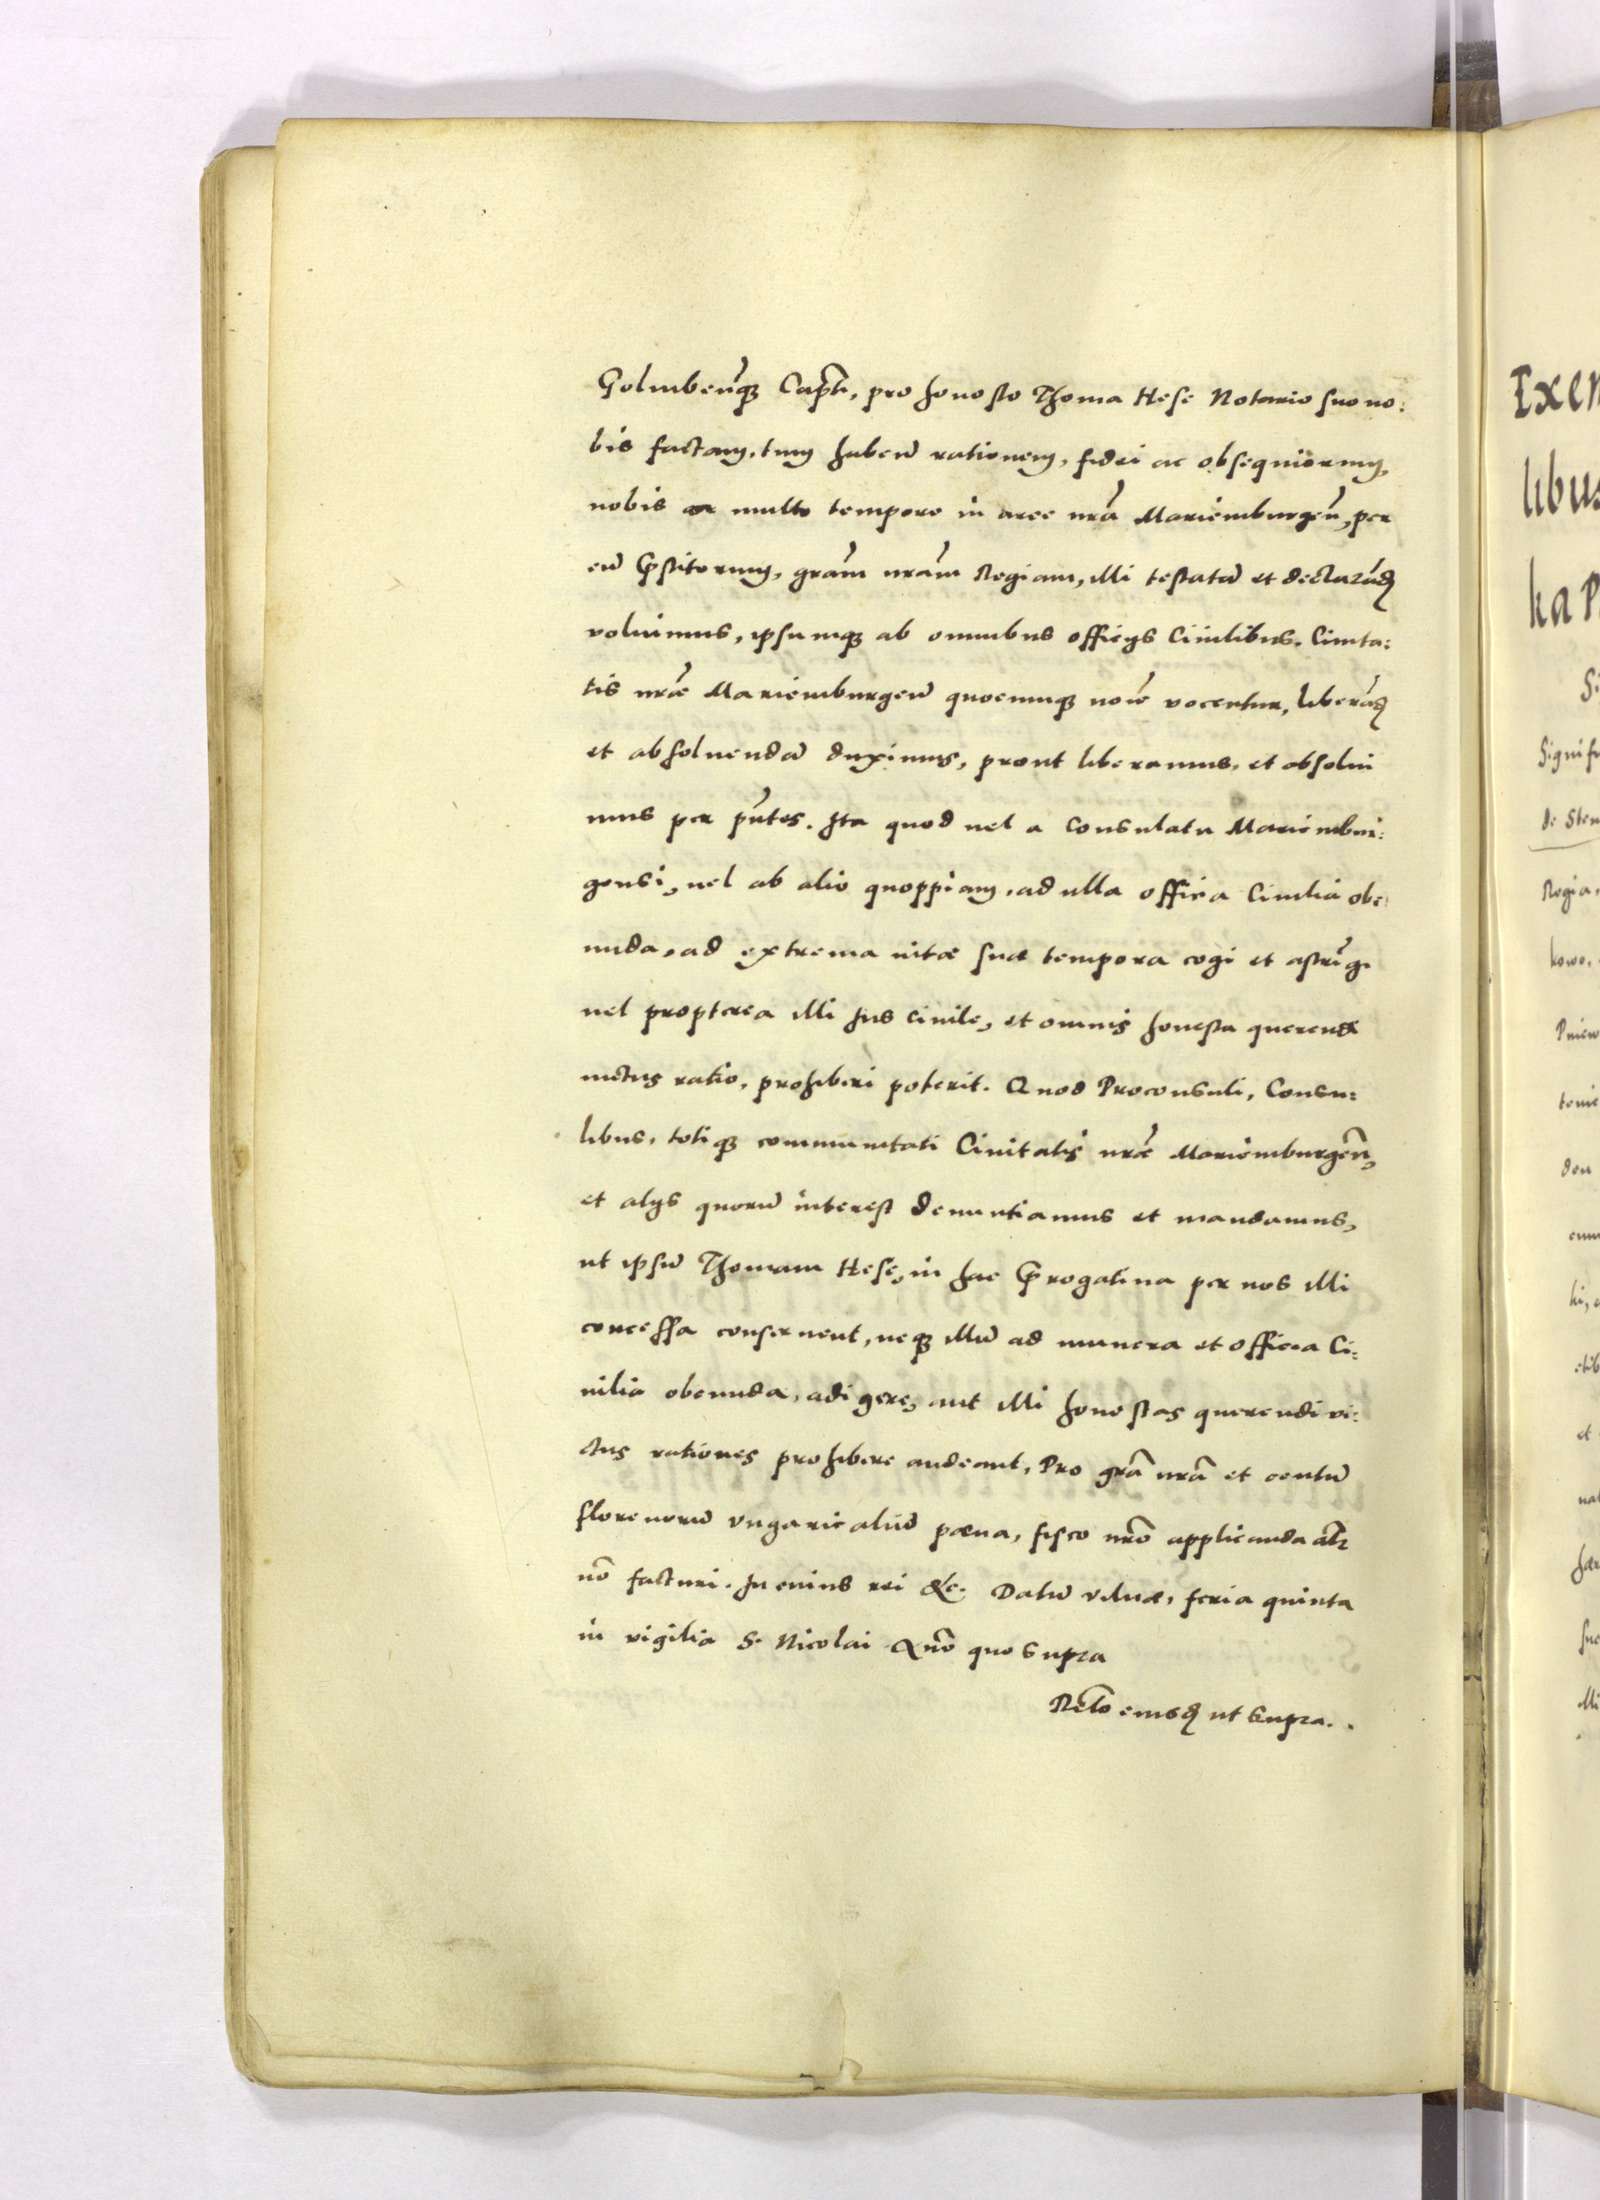 Golmbeñq₃ Capti, pro honesto Thoma Hese Notario suo no:
bis factam, tum habeñ rationem, fidei ac obsequiorum,
nobis a multo tempore in arce nrã Mariemburgeñ, per
eũ p̃stitorum, grãm nrãm Regiam, illi testatã et declarãdã
voluimus, ipsumq₃ ab omnibus officijs Ciuilibus, Ciuita:
tis nræ̃ Mariemburgeñ quocunq₃ noĩe vocentur, liberãdũ
et absoluendũ duximus, prout liberamus, et absolui
mus per p̃ntes. Ita quod uel a Consulatu Mariembur:
gensi, uel ab alio quoppiam, ad ulla officia Ciuilia obe
unda, ad extrema uitæ suæ tempora cogi et astrĩgi
uel propterea illi Jus Ciuile, et omnis honesta querendi
uictus ratio, prohiberi poterit. Quod Proconsuli, Consu:
libus, totiq₃ communitati Ciuitatis nræ̃ Mariemburgeñ,
et alijs quorũ interest denuntiamus et mandamus,
ut ipsũ Thomam Hese, in hac P̃rogatiua per nos illi
concessa conseruent, neq₃ illũ ad munera et officia Ci:
uilia obeunda, adigere, aut illi honestas querendi vi:
ctus rationes prohibere audeant, Pro grã nrã et centũ
florenorũ vngaricaliũ pœna, fisco nrõ applicanda alr̃
nõ facturi. In cuius rei &c. Datũ vilnæ, feria quinta
in vigilia S. Nicolai Añno quo supra
Rel̃o eiusdẽ ut Supra..
Exem
libus
ka P
Si
Signifi
de Sten
Regia,
kowo,
Pniew
tenie
den
cum
ki,
et
nat
hær
suc
illi